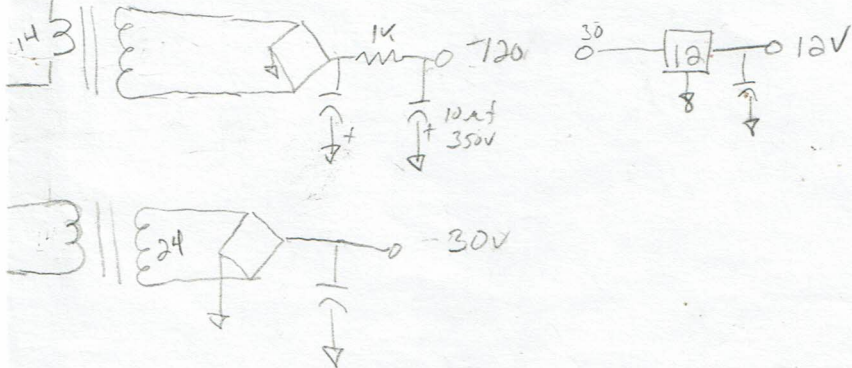 14
1K
-120
10 mf
350V
+
+
30
12
12V
24
-30V